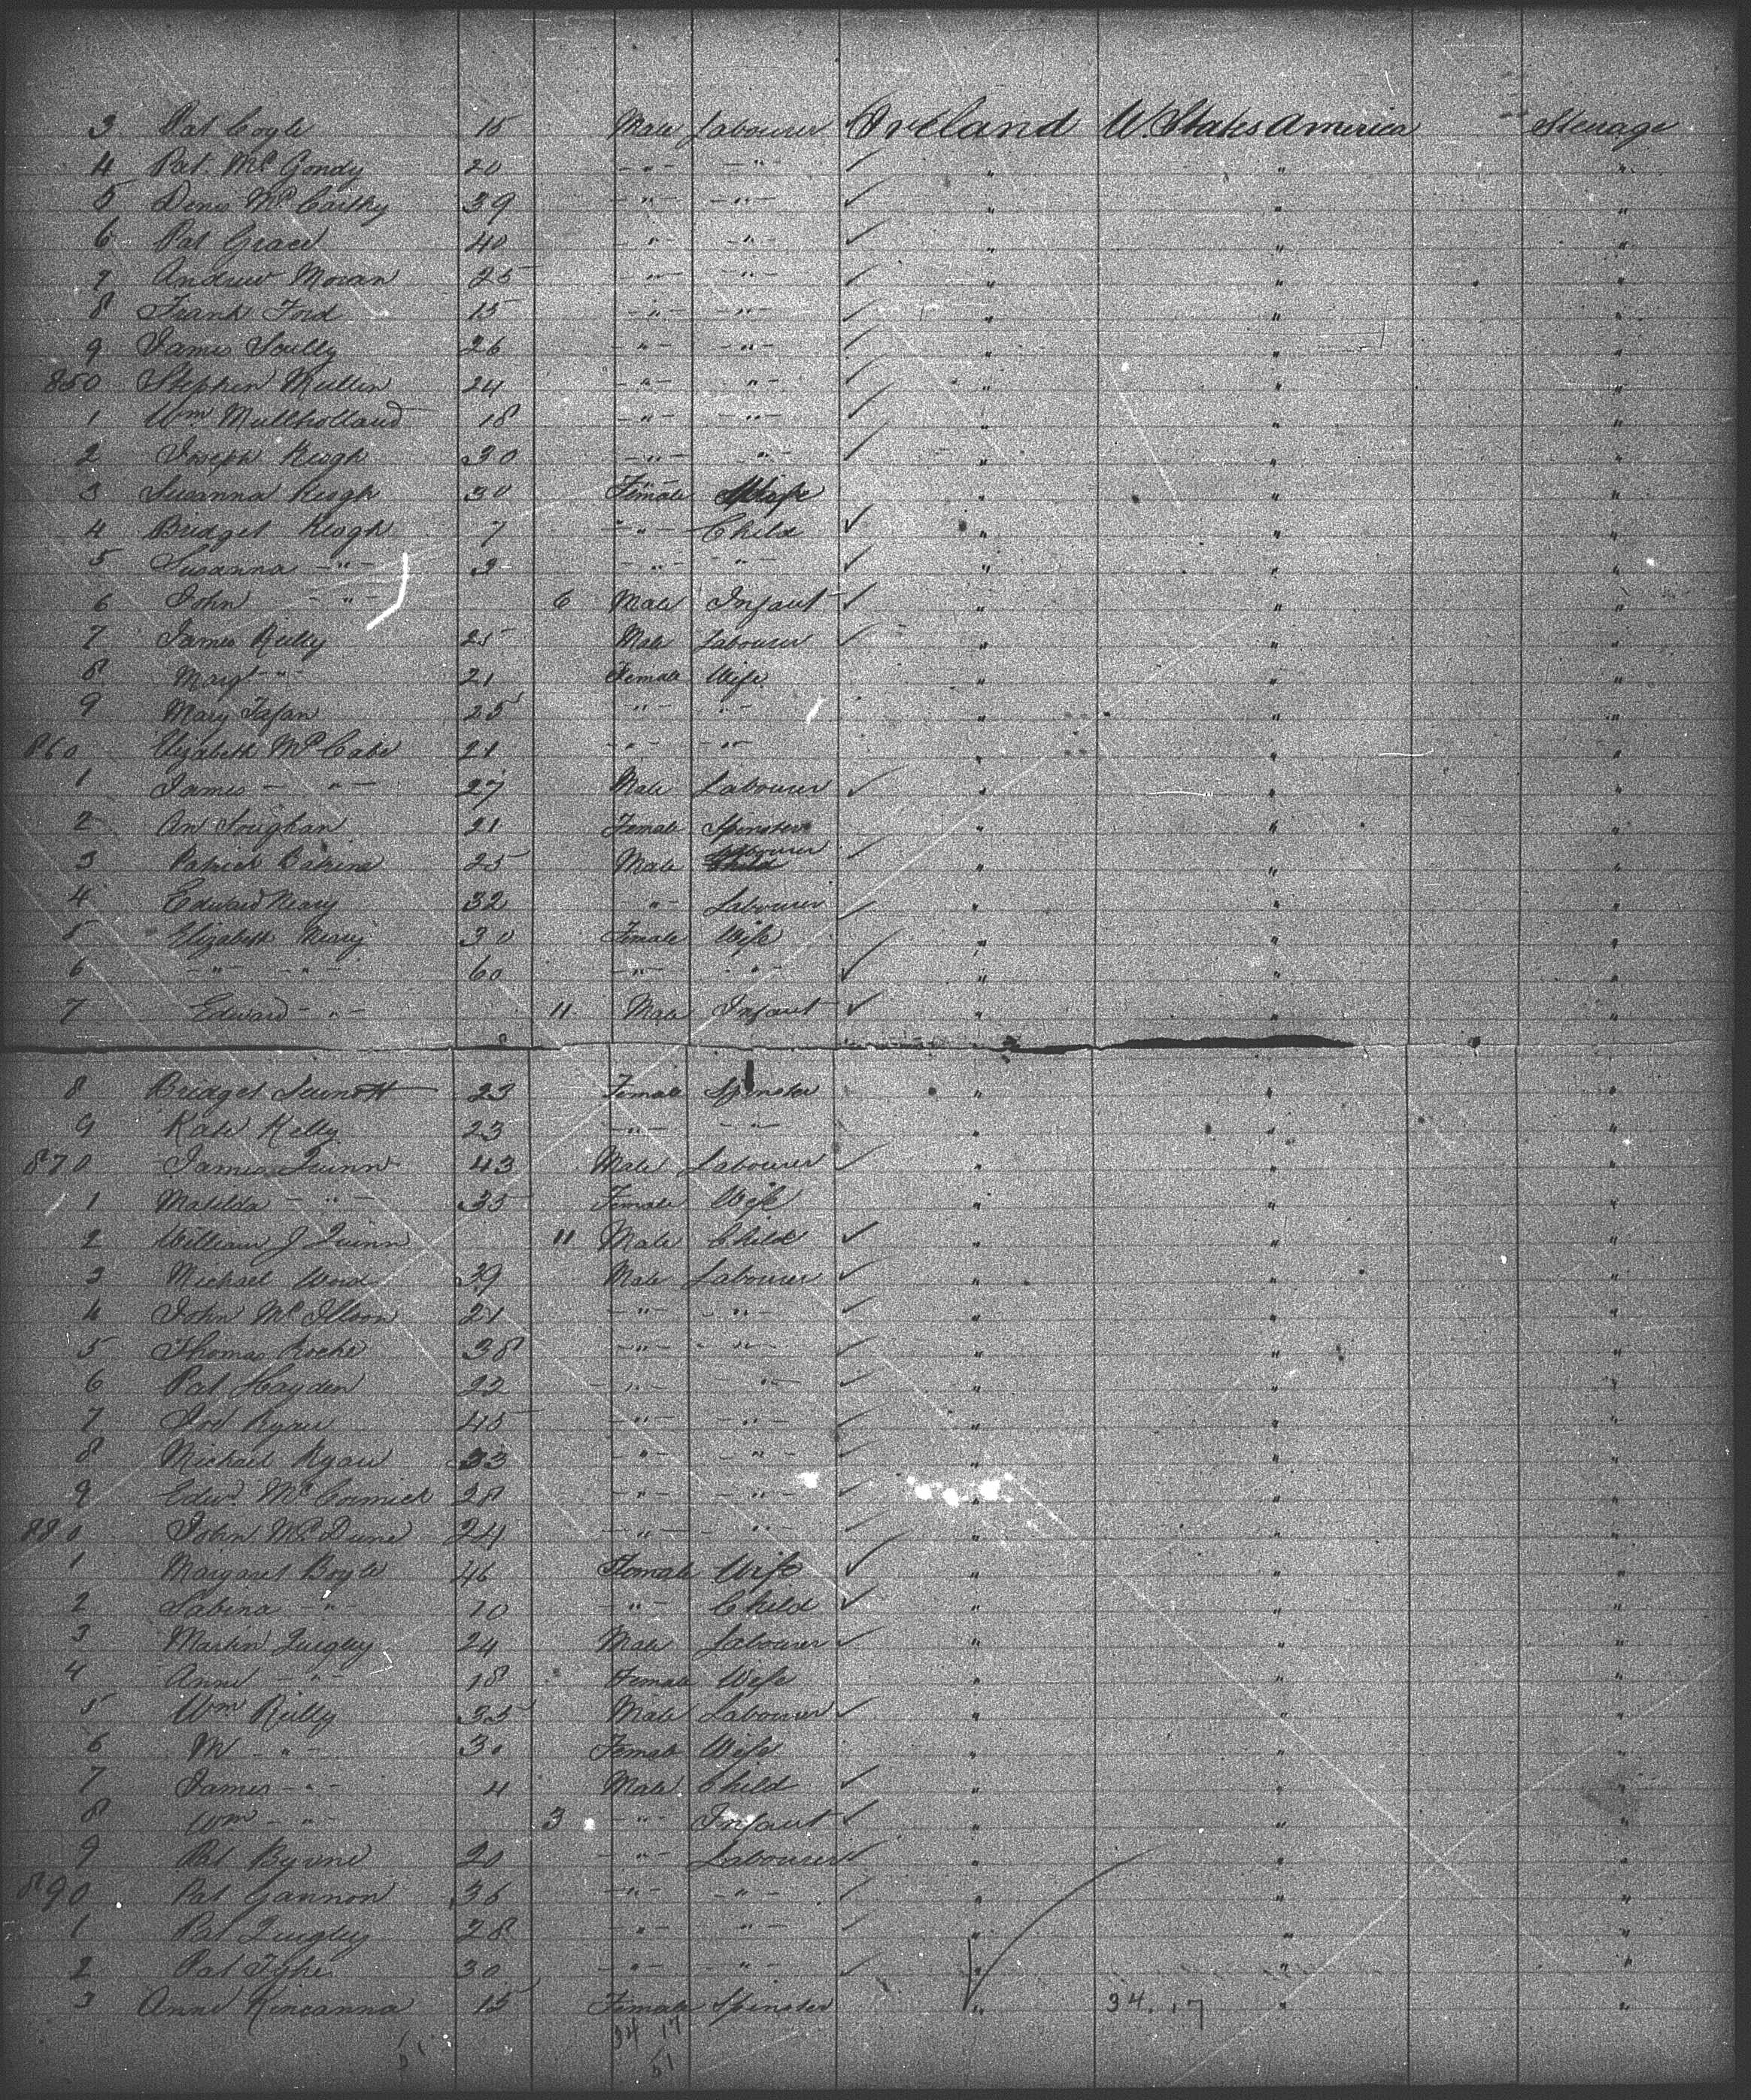 3 Pat Coyle 15 Male Labourer ✓ Ireland U. States America Steerage
4 Pat. Mc Gondy 20 -"- -"- ✓ " " "
5 Denis Mc Carthy 39 -"- -"- ✓ " " "
6 Pat Grace 40 -"- -"- ✓ " " "
7 Andrew Moran 25 -"- -"- ✓ " " "
8 Frank Ford 15 -"- -"- ✓ " " "
9 James Scully 26 -"- -"- ✓ " " "
850 Stephen Mullin 24 -"- -"- ✓ " " "
1 Wm Mullholland 18 -"- -"- ✓ " " "
2 Joseph Keogh 30 -"- -"- ✓ " " "
3 Susanna Keogh 30 Female Wife " " "
4 Bridget Keogh 7 -"- Child ✓ " " "
5 Susanna -"- 3 -"- -"- ✓ " " "
6 John -"- 6 Male Infant ✓ " " "
7 James Reilly 25 Male Labourer ✓ " " "
8 Margt -"- 21 Female Wife " " "
9 Mary 25 -"- -"- " " "
860 Elizabeth Mc Cabe 21 -"- -"- " " "
1 James -"- 27 Male Labourer ✓ " " "
2 An 21 Female Spinster " " "
3 Patrick 25 Male Labourer ✓ " " "
4 Edward Neary 32 -"- Labourer ✓ " " "
5 Elizabeth Neary 30 Female Wife " " "
6 -"- -"- 60 -"- -"- ✓ " " "
7 Edward -"- 11 Male Infant ✓ " " "
8 Bridget 23 Female Spinster " " "
9 Kate Kelly 23 -"- -"- " " "
870 James Quinn 43 Male Labourer ✓ " " "
1 Matilda -"- 35 Female Wife " " "
2 William J Quinn 11 Male Child ✓ " " "
3 Michael Word 39 Male Labourer ✓ " " "
4 John 21 -"- -"- ✓ " " "
5 Thomas Roche 38 -"- -"- ✓ " " "
6 Pat Hayden 22 -"- -"- ✓ " " "
7 45 -"- -"- ✓ " " "
8 Michael Ryan 33 -"- -"- ✓ " " "
9 Edwd. Mc Cormick 28 -"- -"- ✓ " " "
880 John Mc Dune 24 -"- -"- ✓ " " "
1 Margaret Boyle 46 Female Wife ✓ " " "
2 Sabina -"- 10 -"- Child ✓ " " "
3 Martin Quigley 24 Male Labourer ✓ " " "
4 Anne -"- 18 Female Wife " " "
5 Wm Reilly 35 Male Labourer ✓ " " "
6 M -"- 30 Female Wife " " "
7 James -"- 4 Male Child ✓ " " "
8 Wm -"- 3 -"- Infant ✓ " " "
9 Pat Byrne 20 -"- Labourer ✓ " " "
890 Pat Gannon 36 -"- -"- ✓ " " "
1 Pat Quigley 28 -"- -"- ✓ " " "
2 Pat Tighe 30 -"- -"- ✓ " " "
3 Anne Kincanna 15 Female Spinster " 34.17 " "
34 17
51 51